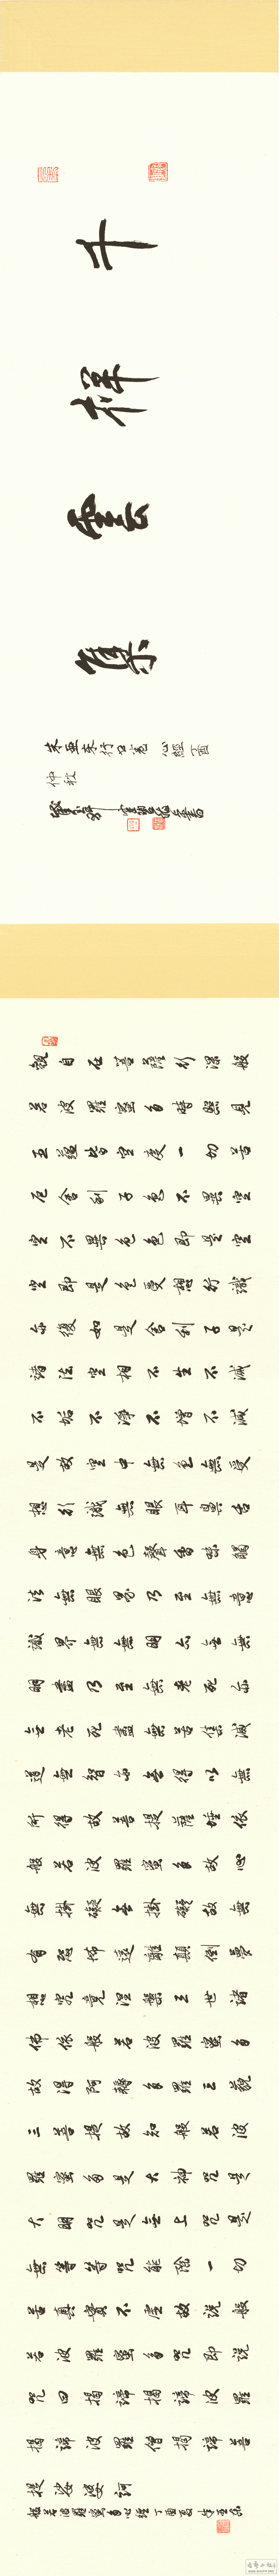 千禪雲集
行書卷 心經 丁酉
仲秋
觀自在菩薩行深般
若波羅蜜多時照見
五蘊皆空度一切苦
厄舍利子色不異空
空不異色色即是空
空即是色受想行識
亦復如是舍利子是
諸法空相不生不滅
不垢不淨不增不減
是故空中無色無受
想行識無眼耳鼻舌
身意無色聲香味觸
法無眼界乃至無意
識界無無明亦無無
明盡乃至無老死亦
無老死盡無苦集滅
道無智亦無得以無
所得故菩提薩埵依
般若波羅蜜多故心
無掛礙無掛礙故無
有恐怖遠離顛倒夢
想究竟涅槃三世諸
佛依般若波羅蜜多
故得阿耨多羅三藐
三菩提故知般若波
羅蜜多是大神咒是
大明咒是無上咒是
無等等咒能除一切
苦真實不虛故說般
若波羅蜜多咒即說
咒曰揭諦揭諦波羅
揭諦波羅僧揭諦菩
提娑婆訶
般若波羅蜜多心經 丁酉夏